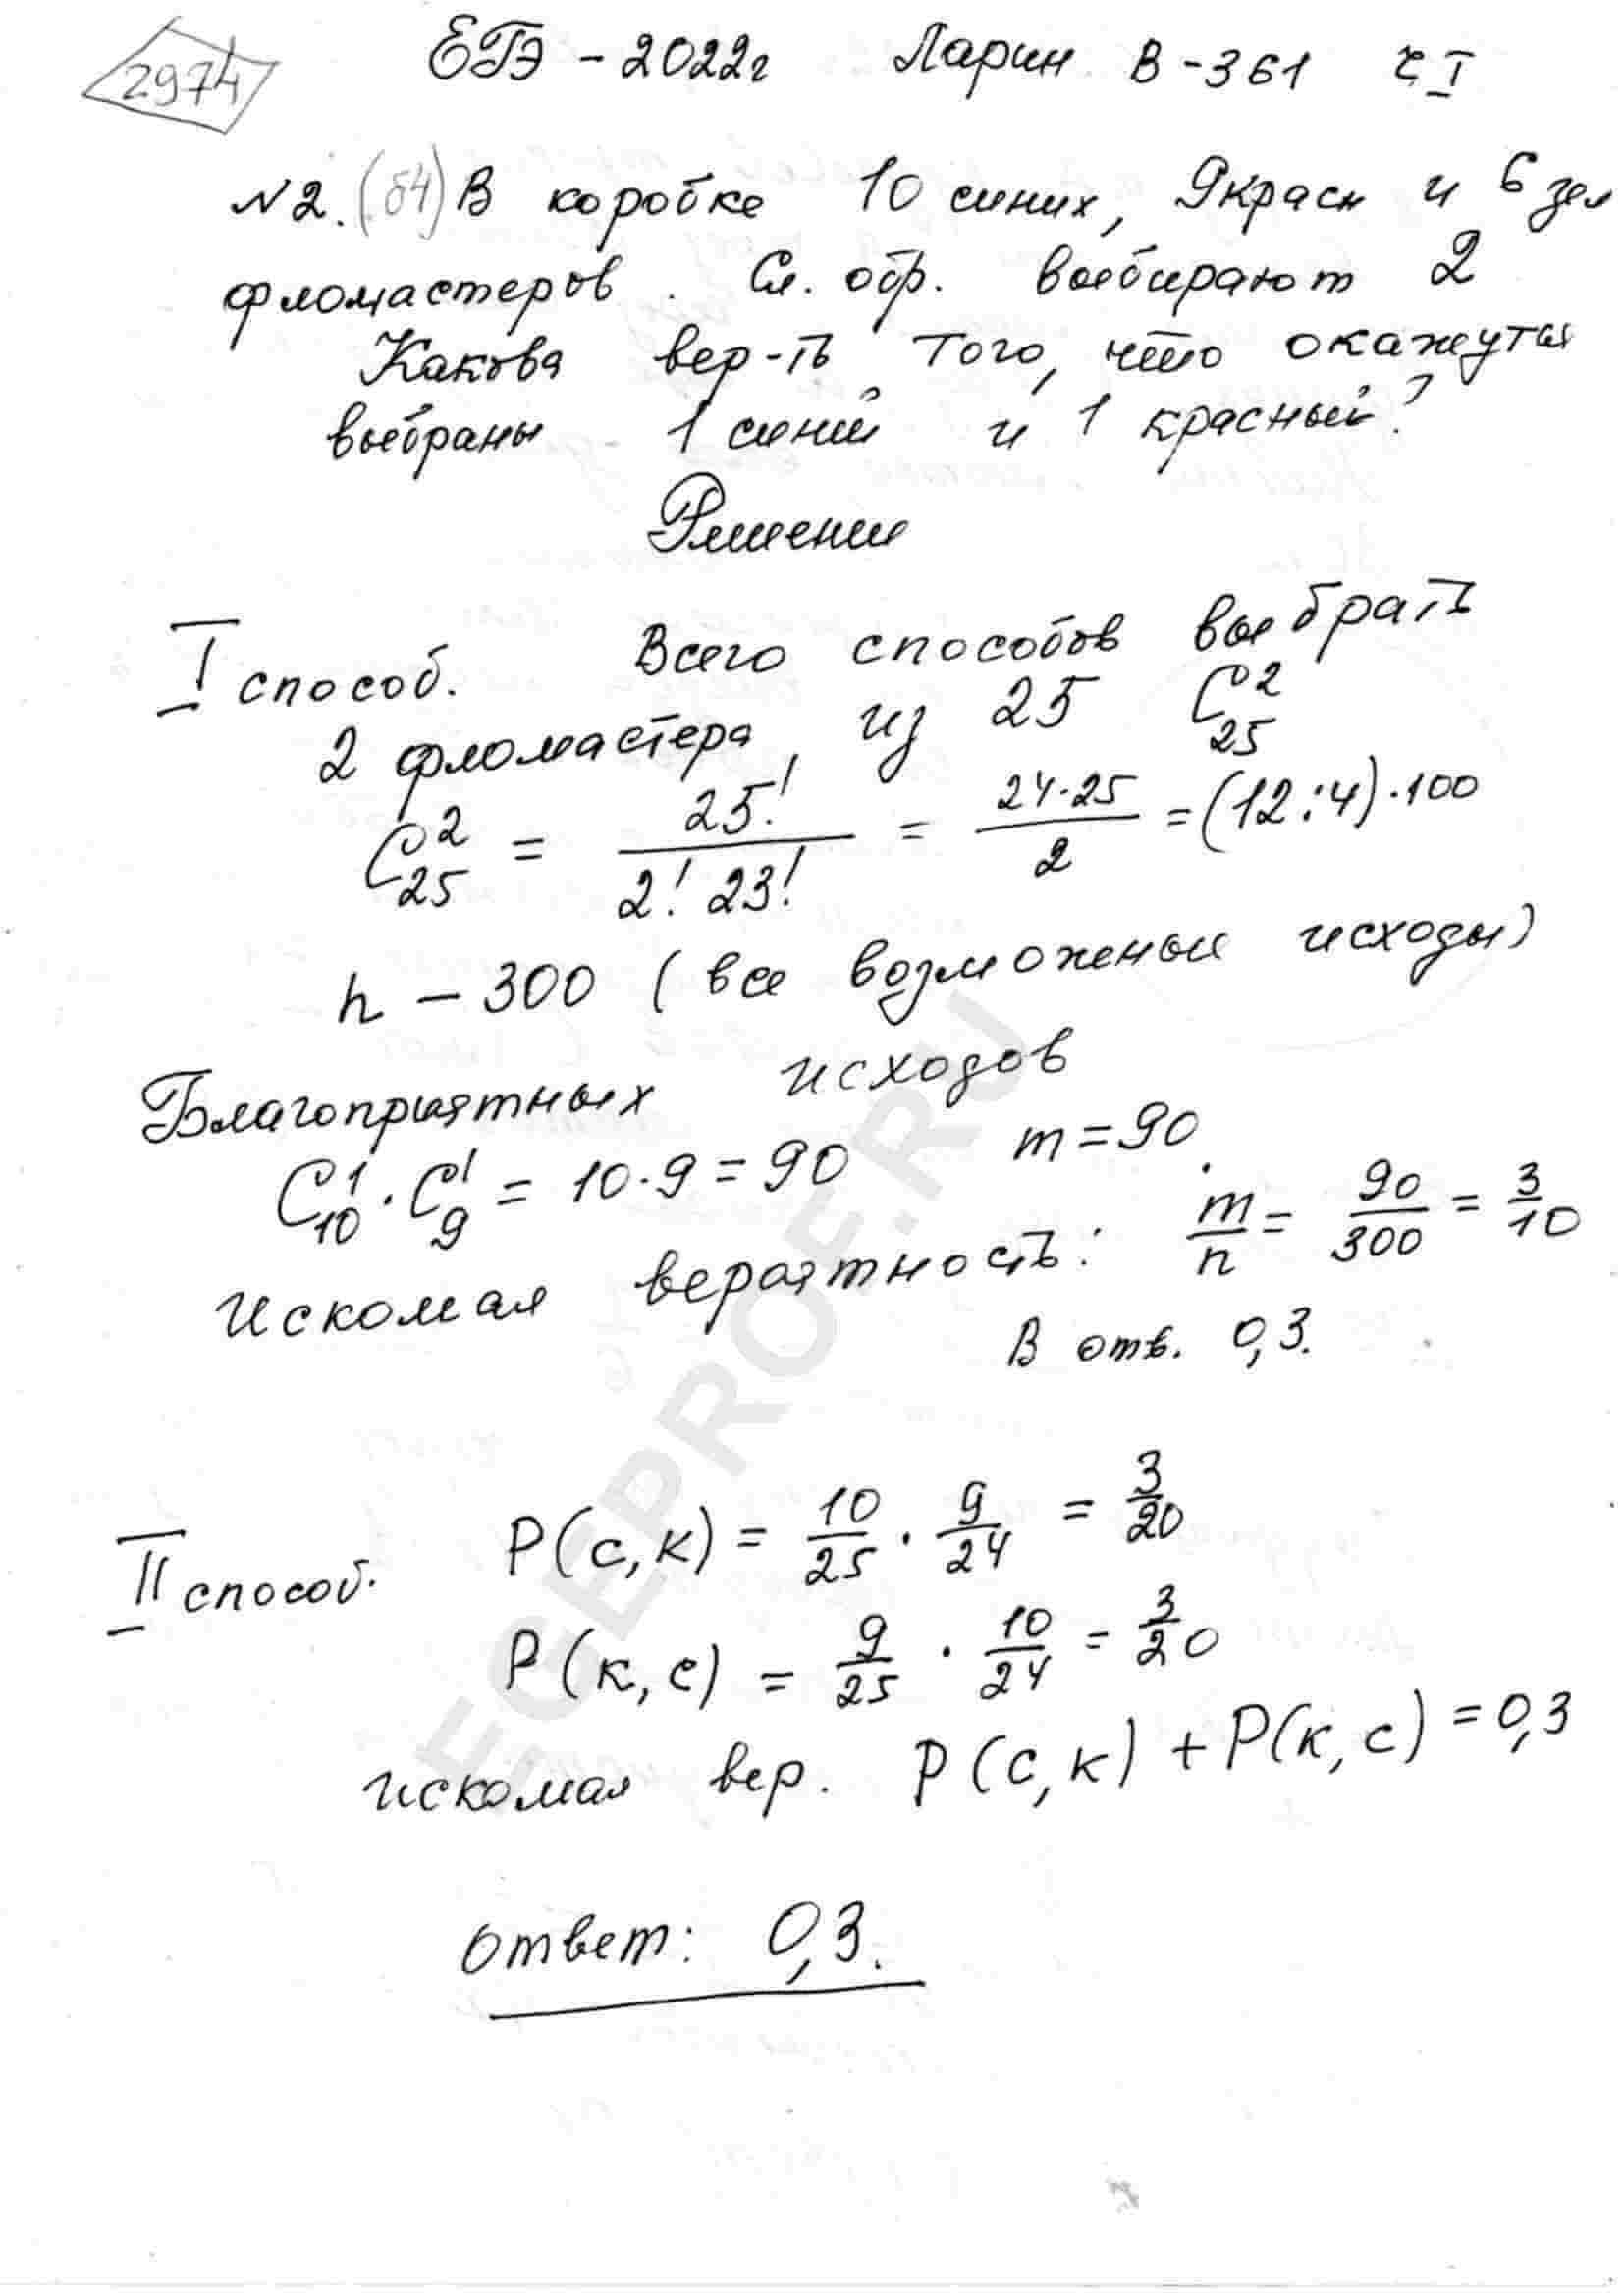 2974
ЕГЭ - 2022г Ларин В-361 ч I
№2. (б4) В коробке 10 синих, 9 красн и 6 зел
фломастеров. Сл. обр. выбирают 2
Какова вер-ть того, что окажутся
выбраны 1 синий и 1 красный?
Решение
I способ. Всего способов выбрать
2 фломастера из 25 C²₂₅
C²₂₅ = 25! / (2! 23!) = 24·25 / 2 = (12:4)·100
n - 300 (все возможные исходы)
Благоприятных исходов
C¹₁₀ · C¹₉ = 10·9 = 90 m = 90.
Искомая вероятность: m/n = 90/300 = 3/10
В отв. 0,3.
II способ. P(с,к) = 10/25 · 9/24 = 3/20
P(к,с) = 9/25 · 10/24 = 3/20
искомая вер. P(с,к) + P(к,с) = 0,3
ответ: 0,3.
EGEPROF.RU